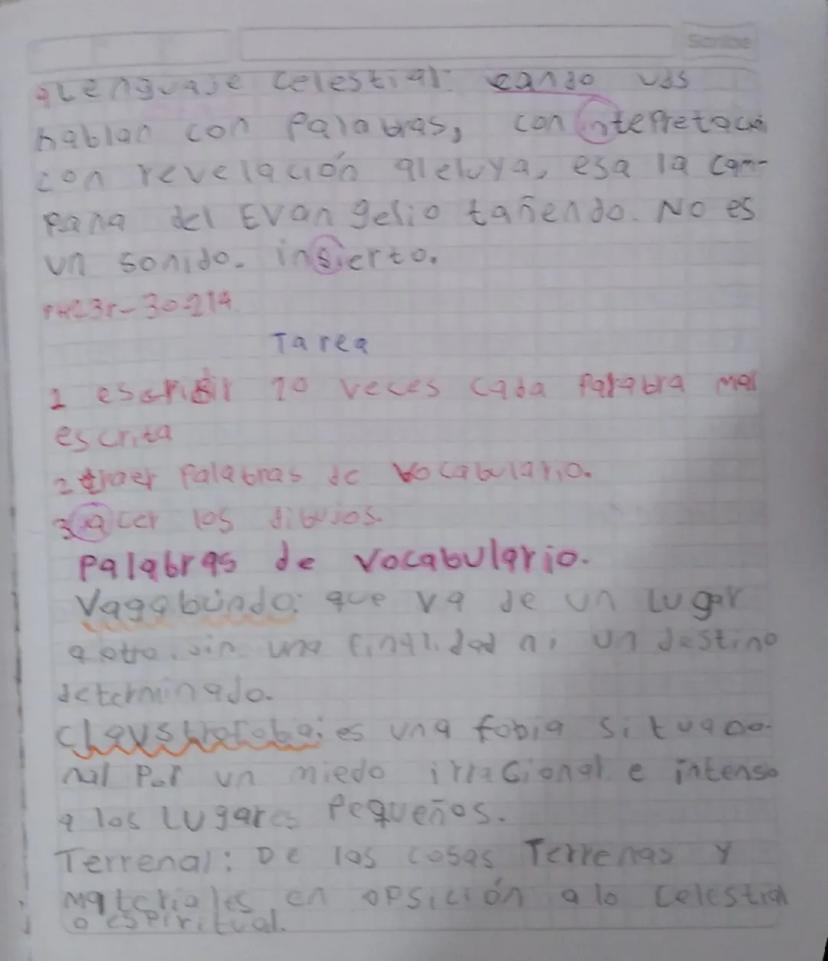 Scribe
lenguaje celestial: cando uds
hablan con palabras, con intepretacui
con revelación aleluya, esa la cam-
pana del Evangelio tañendo. No es
un sonido. insierto.
Tarea
1 escribir 10 veces cada palabra mal
escrita
2 traer palabras de vocabulario.
3 acer los dibujos.
palabras de vocabulario.
Vagabundo: que va de un lugar
a otro. sin una finalidad ni un destino
determinado.
es una fobia situacio-
nal por un miedo irracional e intenso
a los lugares pequeños.
Terrenal: De las cosas Terrenas y
materiales en opsición a lo celestial
o espiritual.